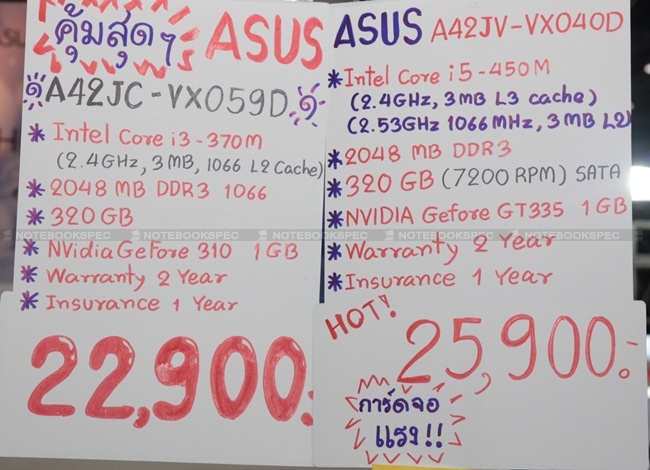 คุ้มสุดๆ ASUS
A42JC-VX059D
* Intel Core i3-370M
(2.4GHz, 3MB, 1066 L2 Cache)
* 2048 MB DDR3 1066
* 320 GB
* NVidia GeFore 310 1GB
* Warranty 2 Year
* Insurance 1 Year
22,900.-
ASUS A42JV-VX040D
* Intel Core i5-450M
(2.4GHz, 3MB L3 cache)
(2.53GHz 1066MHz, 3MB L2)
* 2048 MB DDR3
* 320 GB (7200 RPM) SATA
* NVIDIA Gefore GT335 1GB
* Warranty 2 Year
* Insurance 1 Year
HOT!
25,900.-
การ์ดจอ
แรง!!
NOTEBOOKSPEC NOTEBOOKSPEC NOTEBOOKSPEC NOTEBOOKSPEC